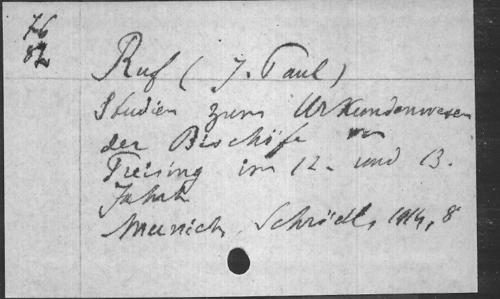 76
82
Ruf (J. Paul)
Studien zum Urkundenwesen
der Bischöfe von
Freising im 12. und 13.
Jahrh
Munich, Schrödl, 1914, 8